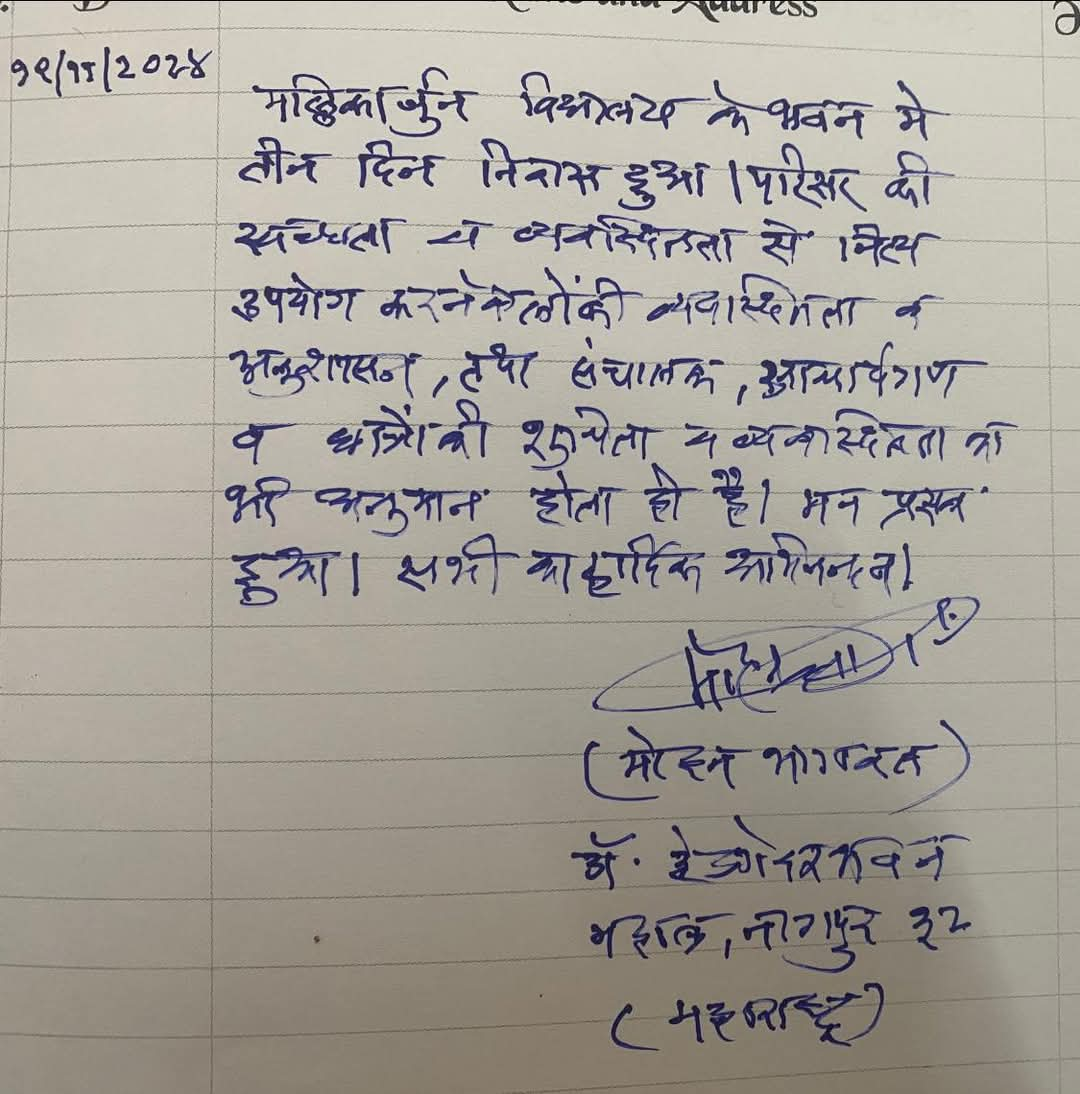 Name and Address
१९/११/२०२४
मल्लिकार्जुन विद्यालय के भवन मे
तीन दिन निवास हुआ। परिसर की
स्वच्छता व व्यवस्थितता से नित्य
उपयोग करनेवालोंकी व्यवस्थितता व
अनुशासन, तथा संचालक, आचार्यगण
व छात्रों की शुचिता व व्यवस्थितता का
भी अनुमान होता ही है। मन प्रसन्न
हुआ। सभी का हार्दिक अभिनन्दन।
(मोहन भागवत)
डॉ. हेडगेवार भवन
महाल, नागपुर ३२
(महाराष्ट्र)